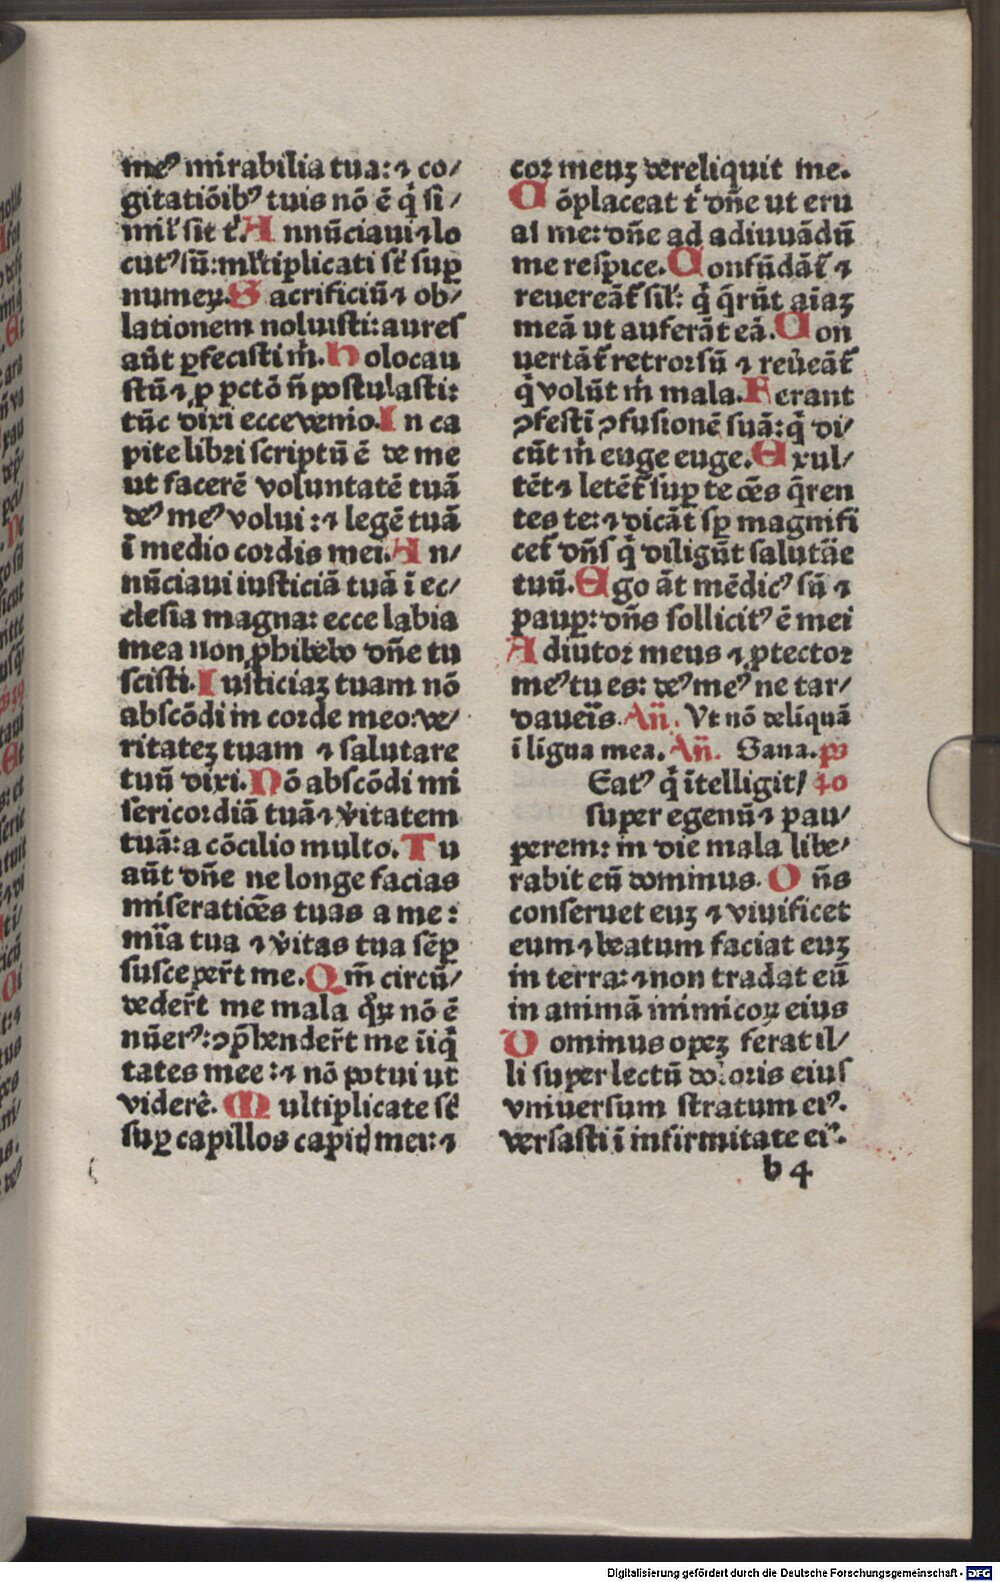 meꝰ mirabilia tua: ⁊ co/
gitatiōibꝰ tuis nō ē q̇ si/
mil̓ sit t̓. Annūciaui ⁊ lo
cutꝰ sū: ml̓tiplicati st̓ suꝑ
numeꝝ. Sacrificiū ⁊ ob/
lationem noluisti: aures
aūt ꝑfecisti m̓. Holocau
stū ⁊ ꝓ pctō n̄ postulasti:
tūc dixi ecce venio. In ca
pite libri scriptū ē de me
ut facerē voluntatē tuā
deꝰ meꝰ volui: ⁊ legē tuā
ī medio cordis mei. An/
nūciaui iusticiā tuā ī ec/
clesia magna: ecce labia
mea non ꝓhibebo dn̄e tu
scisti. Iusticiaꝫ tuam nō
abscōdi in corde meo: ve/
ritateꝫ tuam ⁊ salutare
tuū dixi. Nō abscōdi mi
sericordiā tuā ⁊ v̓itatem
tuā: a cōcilio multo. Tu
aūt dn̄e ne longe facias
miseratiōes tuas a me:
mīa tua ⁊ v̓itas tua sēꝑ
susceper̄t me. Qm̄ circū/
deder̄t me mala qͦꝝ nō ē
nūerꝰ: ꝯp̄hender̄t me iīq̇
tates mee: ⁊ nō potui ut
viderē. Multiplicate st̓
suꝑ capillos capitꝭ mei: ⁊
cor meuꝫ dereliquit me.
Cōplaceat t̓ dn̄e ut eru
as me: dn̄e ad adiuuādū
me respice. Confūdāt̓ ⁊
reuereāt̓ sil̓: q̇ q̄rūt aīaꝫ
meā ut auferāt eā. Con
uertāt̓ retrorsū ⁊ reūeāt̓
q̇ volūt m̓ mala. Ferant
ꝯfestī ꝯfusionē suā: q̇ di/
cūt m̓ euge euge. Exul/
tēt ⁊ letēt̓ suꝑ te oēs q̄ren
tes te: ⁊ dicāt sꝑ magnifi
cet̓ dn̄s q̇ diligūt salutāe
tuū. Ego āt mēdicꝰ sū ⁊
pauꝑ: dn̄s sollicitꝰ ē mei
Adiutor meus ⁊ ꝓtector
meꝰ tu es: deꝰ meꝰ ne tar/
daueīs. Añ. Vt nō deliquā
ī ligua mea. Añ. Sana. ps
Eatꝰ q̇ ītelligit/ 40
super egenū ⁊ pau/
perem: in die mala libe/
rabit eū dominus. Dn̄s
conseruet euꝫ ⁊ viuificet
eum ⁊ beatum faciat euꝫ
in terra: ⁊ non tradat eū
in animā inimicoꝝ eius
Dominus opeꝫ ferat il/
li super lectū doloris eius
vniuersum stratum eiꝰ.
versasti ī infirmitate eiꝰ.
b 4
Digitalisierung gefördert durch die Deutsche Forschungsgemeinschaft - DFG